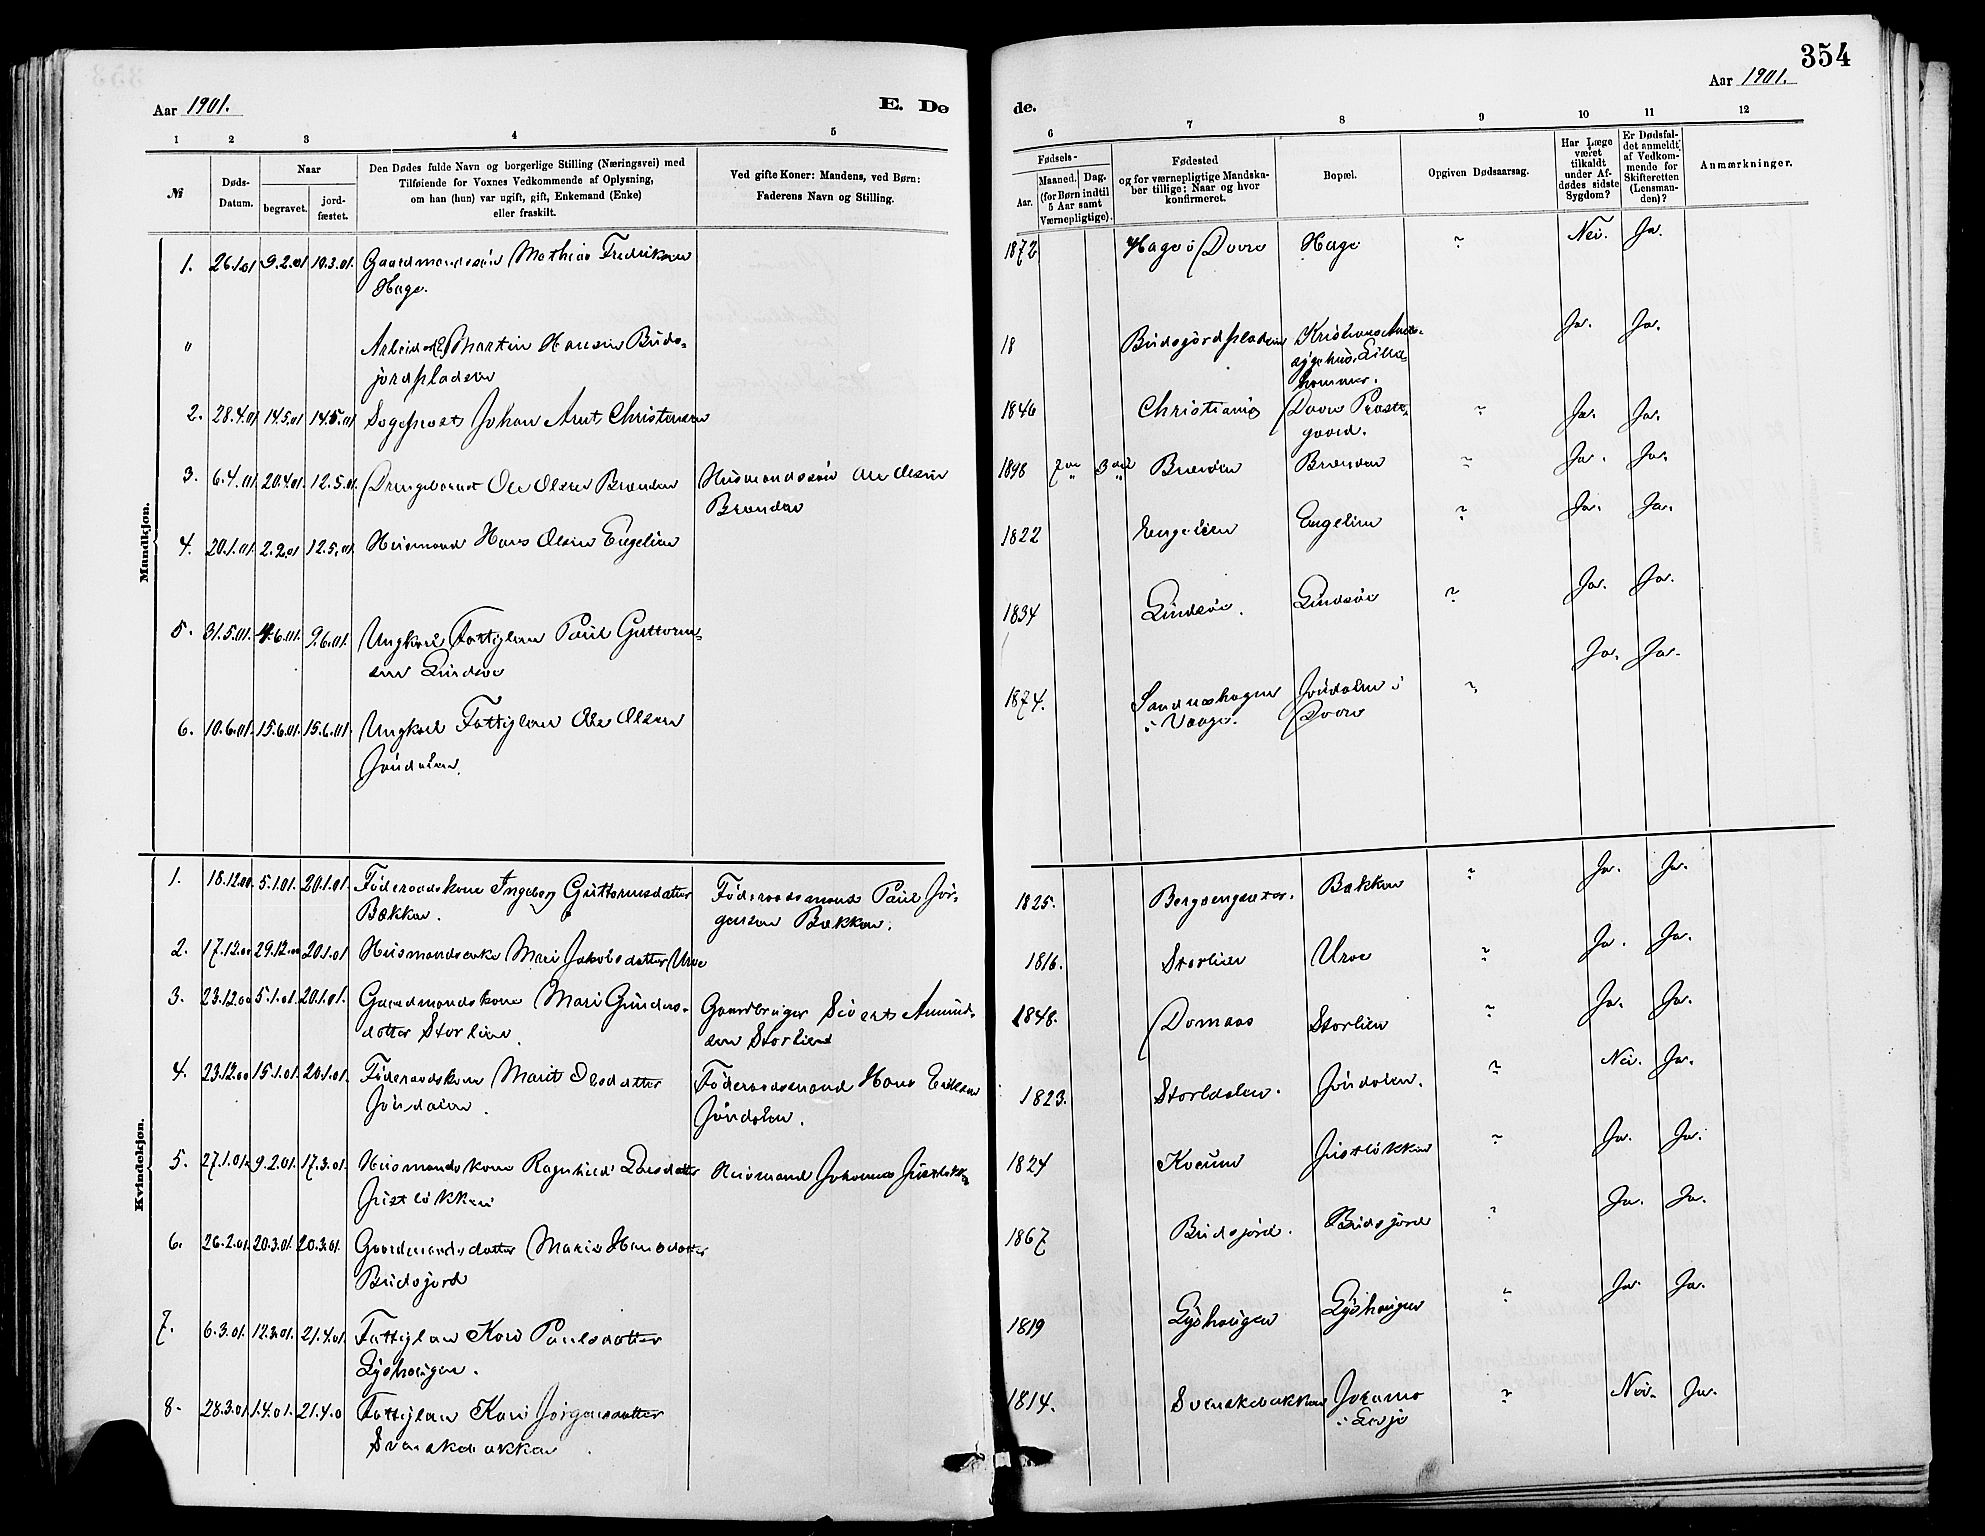 354
Aar 1901.
E. Dø
de.
Aar 1901.
1 2 3 4 5
6 7 8 9 10 11 12
№
Døds-
Datum.
Naar
begravet.
jord-
fæstet.
Den Dødes fulde Navn og borgerlige Stilling (Næringsvei) med
Tilføiende for Voxnes Vedkommende af Oplysning,
om han (hun) var ugift, gift, Enkemand (Enke)
eller fraskilt.
Ved gifte Koner: Mandens, ved Børn:
Faderens Navn og Stilling.
Fødsels-
Aar.
Maaned. Dag.
(for Børn indtil
5 Aar samt
Værnepligtige).
Fødested
og for værnepligtige Mandska-
ber tillige: Naar og hvor
konfirmeret.
Bopæl.
Opgiven Dødsaarsag.
Har Læge
været
tilkaldt
under Af-
dødes sidste
Sygdom?
Er Dødsfal-
det anmeldt
af Vedkom-
mende for
Skifteretten
(Lensman-
den)?
Anmærkninger.
Mandkjøn.
1. 26.1.01 9.2.01 10.3.01. Gaardmandssøn Mathias Fredriksen 1872 Hage i Dovre Hage ~ Nei. Ja.
Hage.
" Arbeider Martin Hansen Buds- 18 Budsjordpladsen Kristians Amts- Ja. Ja.
jordpladsen sygehus, Lille-
hammer.
2. 28.4.01 14.5.01 14.5.01 Sogneprest Johan Arnt Christensen 1846 Christiania Dovre Præste- ~ Ja. Ja.
gaard.
3. 6.4.01 20.4.01 12.5.01. Drengebarnet Ole Olsen Brænden Husmandssøn Ole Olsen 1898 Brænden Brænden ~ Ja. Ja.
Brænden
4. 20.1.01. 2.2.01 12.5.01. Husmand Hans Olsen Engelien 1822 Engelien Engelien ~ Ja. Ja.
5. 31.5.01. 4.6.01. 9.6.01. Ungkarl Fattiglem Paul Guttorm- 1834 Lindsøe. Lindsøe ~ Ja. Ja.
sen Lindsøe
6. 10.6.01. 15.6.01 15.6.01. Ungkarl Fattiglem Ole Olsen 1874. Sandnæshagen Jöndalen i ~ Ja. Ja.
Jöndalen. i Vaage. Dovre
Kvindekjøn.
1. 18.12.00. 5.1.01. 20.1.01. Föderaadskone Ingeborg Guttormsdatter Föderaadsmand Paul Jör- 1825. Bergsengsæter. Bækken ~ Ja. Ja.
Bækken. gensen Bækken.
2. 17.12.00 29.12.00 20.1.01 Husmandsenke Mari Jakobsdatter Uroe 1816. Storlien Uroe ~ Ja. Ja.
3. 23.12.00 5.1.01. 20.1.01. Gaardmandskone Mari Gunders- Gaardbruger Sivert Amund- 1848. Domaas Storlien ~ Ja. Ja.
datter Storlien. sen Storlien
4. 23.12.00 15.1.01. 20.1.01. Föderaadskone Marit Olsdatter Föderaadsmand Hans Eriksen 1823. Storldalen. Jöndalen. ~ Nei. Ja.
Jöndalen. Jöndalen.
5. 27.1.01. 9.2.01. 17.3.01. Husmandskone Ragnhild Larsdatter Husmand Johannes Jistløkken 1824 Kvum Jistløkken ~ Ja. Ja.
Jistløkken
6. 26.2.01. 20.3.01. 20.3.01. Gaardmandsdatter Marie Hansdatter 1867 Budsjord. Budsjord ~ Ja. Ja.
Budsjord
7. 6.3.01. 12.3.01. 21.4.01. Fattiglem Kari Paulsdatter 1819 Lyshaugen Lyshaugen ~ Ja. Ja.
Lyshaugen.
8. 28.3.01. 1.4.01. 21.4.0 Fattiglem Kari Jörgensdatter 1814. Svenskebakken Joramo ~ Nei. Ja.
Svenskebakken. i Lesje